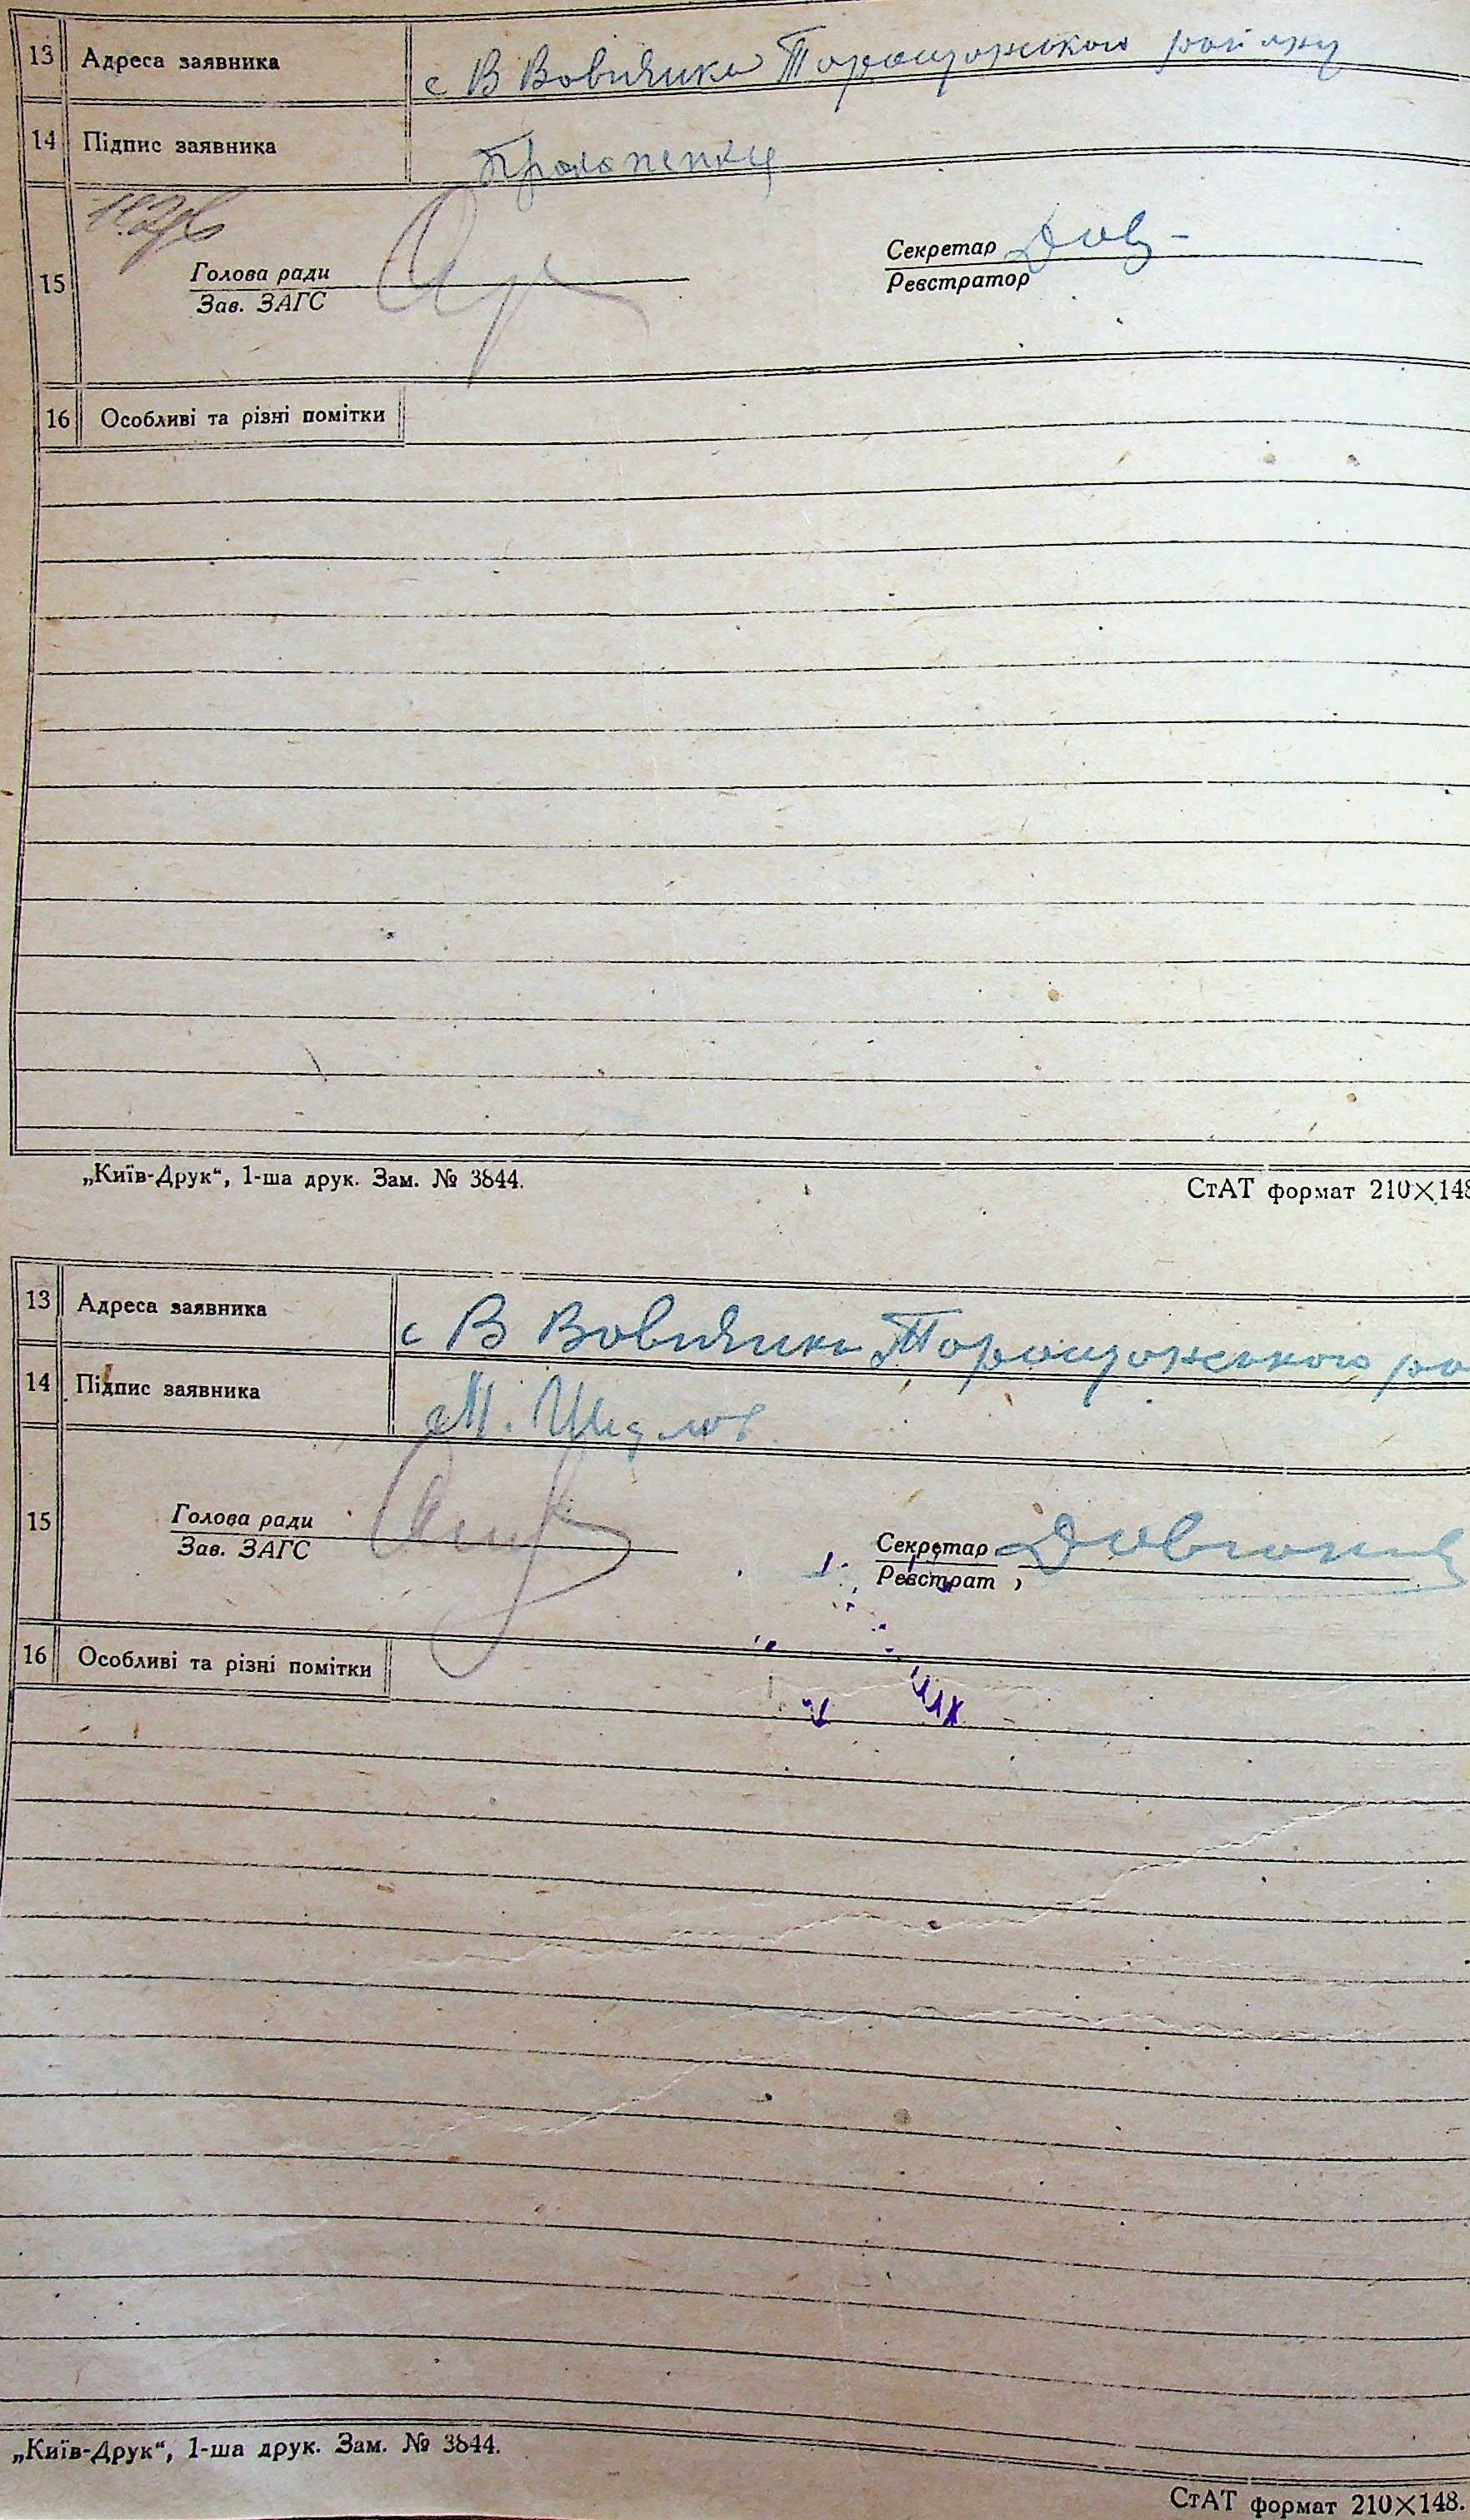 13 Адреса заявника с В Вовнянка Таращанського району
14 Підпис заявника
15 Голова ради Секретар
Зав. ЗАГС Реєстратор
16 Особливі та різні помітки
„Київ-Друк“, 1-ша друк. Зам. № 3844. СтАТ формат 210×148
13 Адреса заявника с В Вовнянка Таращанського ра
14 Підпис заявника М.
15 Голова ради Секретар
Зав. ЗАГС Реєстрат
16 Особливі та різні помітки
„Київ-Друк“, 1-ша друк. Зам. № 3844.
СтАТ формат 210×148.